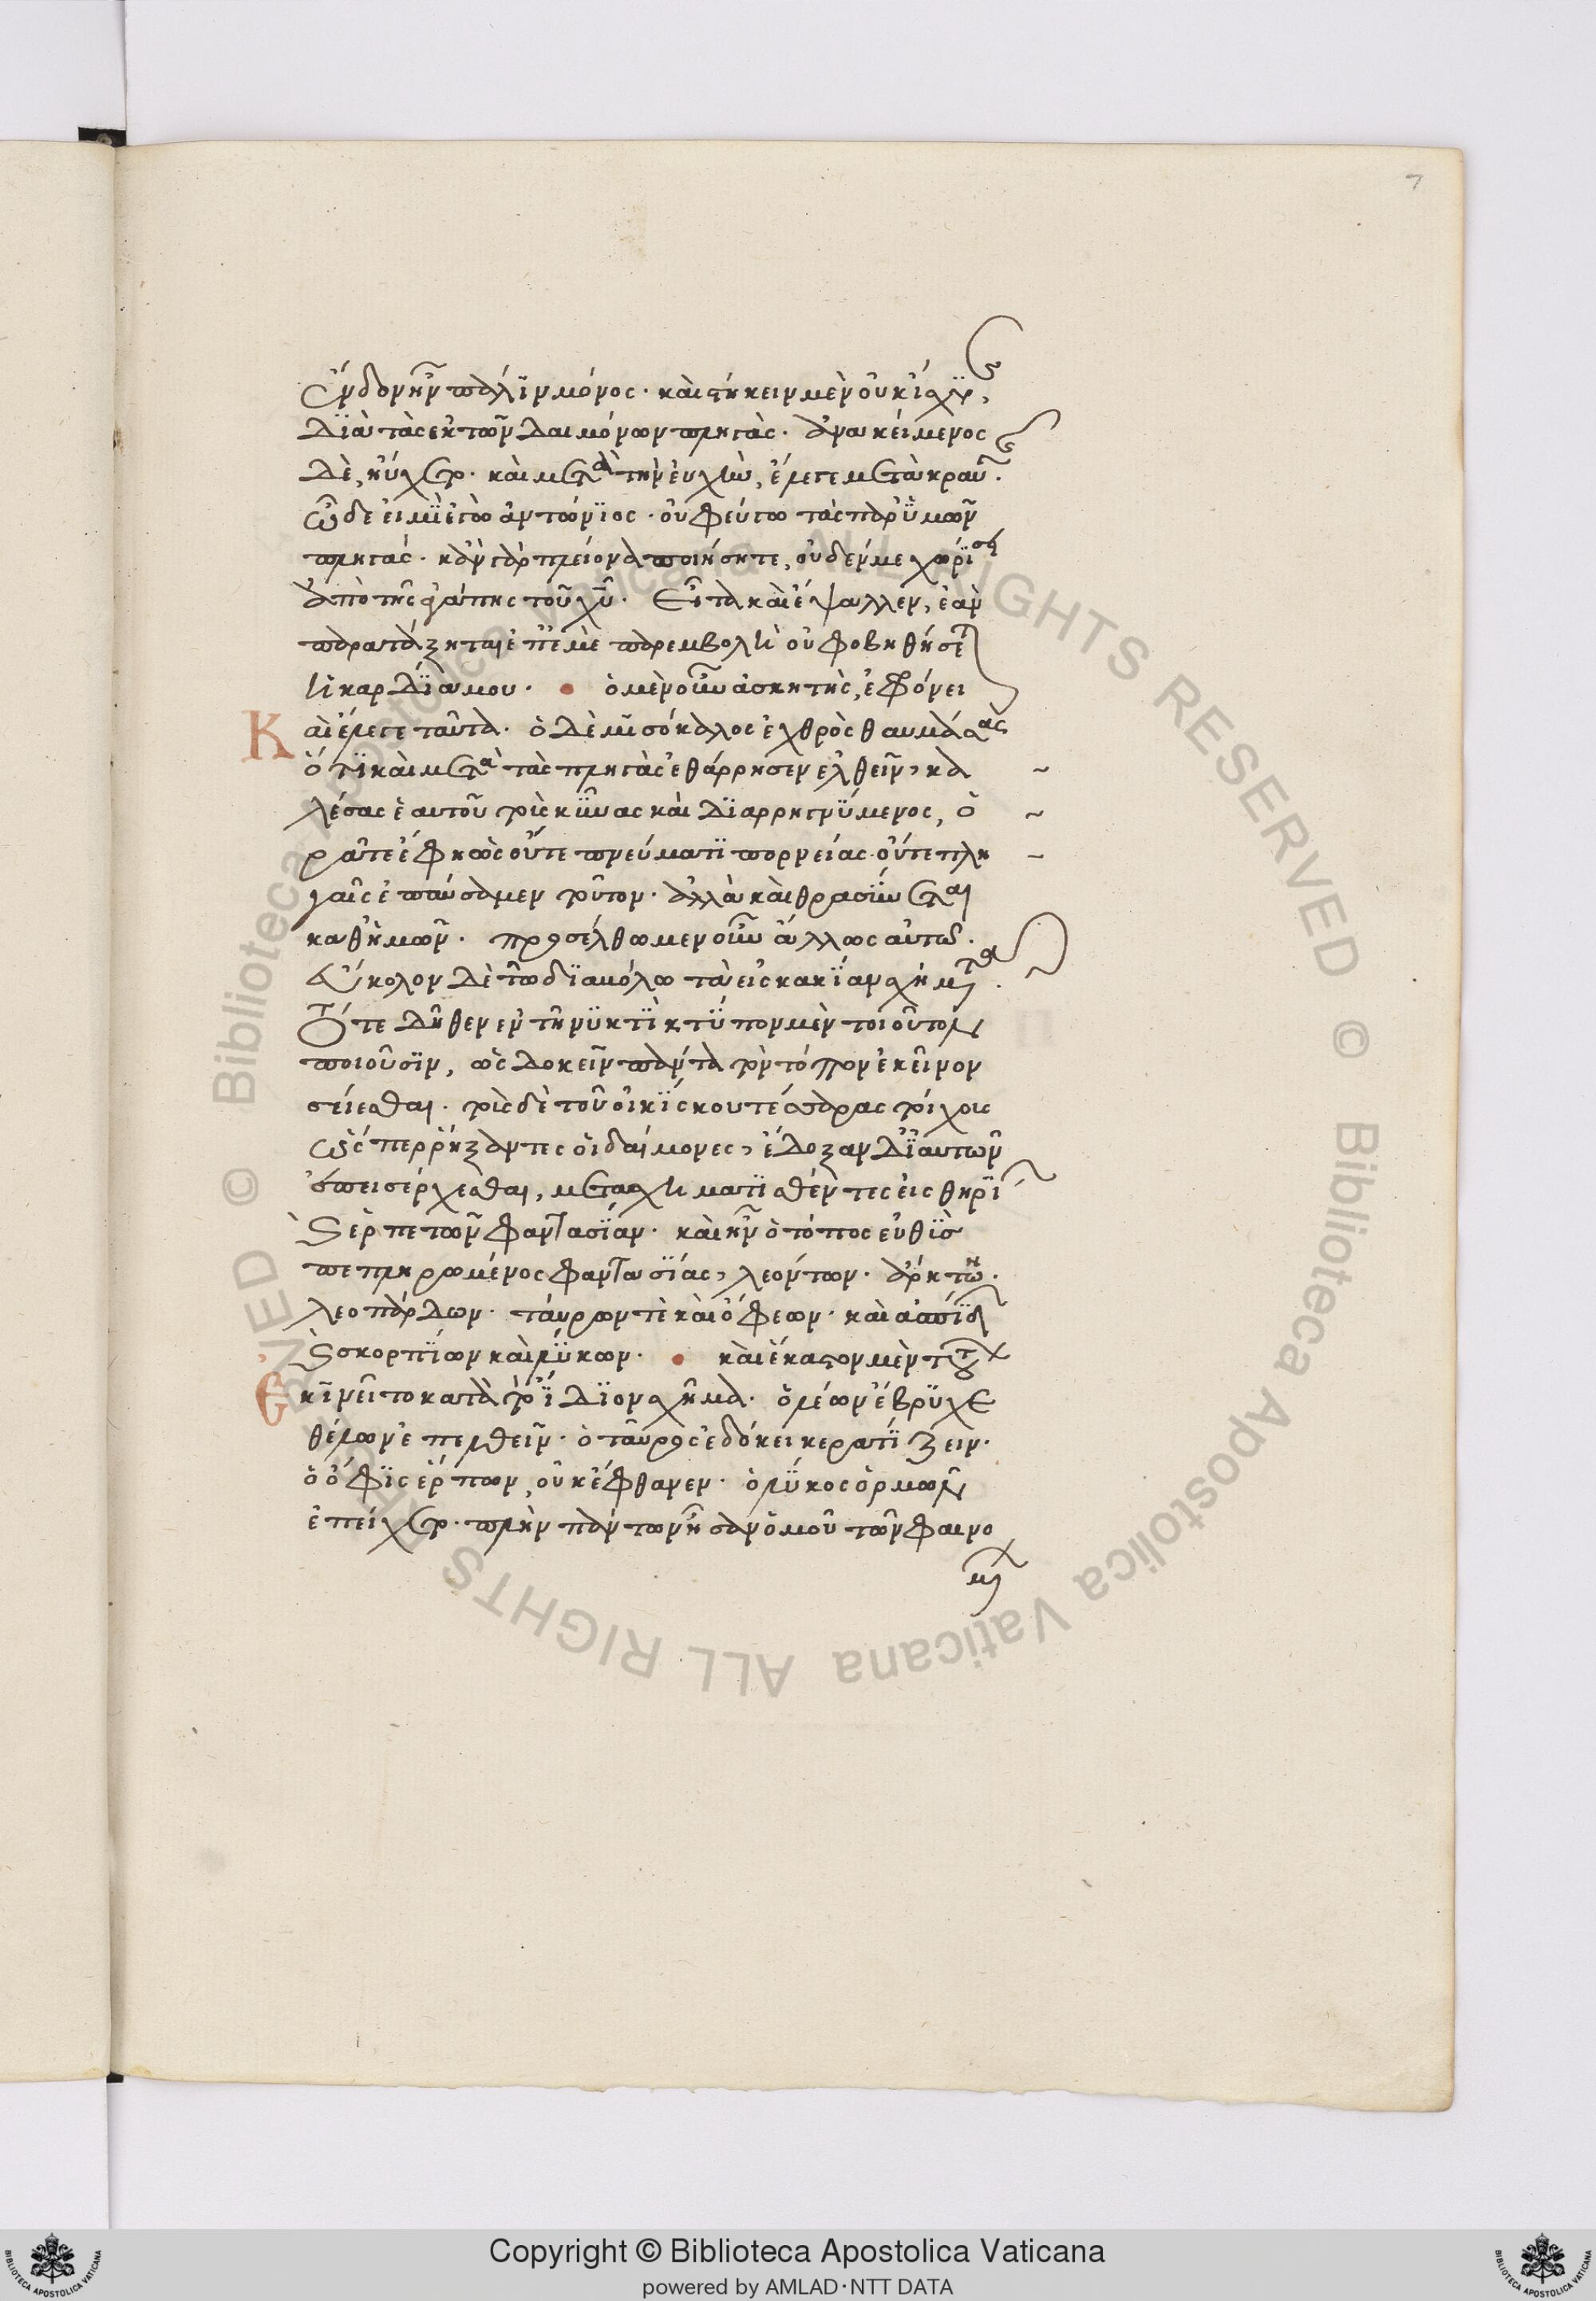 7
ἔνδον ἦν πάλιν μόνος· καὶ στήκειν μὲν οὐκ ἴσχυε,
διὰ τὰς ἐκ τῶν δαιμόνων πληγάς· ἀνακείμενος
δὲ, ηὔχετο· καὶ μετὰ τὴν εὐχὴν, ἔλεγε μετὰ κραυγῆς·
ὧδε εἰμὶ ἐγὼ ἀντώνιος· οὐ φεύγω τὰς παρ' ὑμῶν
πληγάς· κἂν γὰρ πλείονα ποιήσητε, οὐδέν με χωρίσει
ἀπὸ τῆς ἀγάπης τοῦ χυ· Εἶτα καὶ ἔψαλλεν, ἐὰν
παρατάξηται ἐπ' ἐμὲ παρεμβολὴ οὐ φοβηθήσεται
ἡ καρδία μου· ὁ μὲν οὖν ἀσκητὴς, ἐφρόνει
Καὶ ἔλεγε ταῦτα· ὁ δὲ μισόκαλος ἐχθρὸς θαυμάσας
ὅτι καὶ μετὰ τὰς πληγὰς ἐθάρρησεν ἐλθεῖν, κα
λέσας ἑαυτοῦ τοὺς κύνας καὶ διαρρηγνύμενος, ὁ
ρᾶτε ἔφη ὡς οὔτε πνεύματι πορνείας· οὔτε πλη
γαῖς ἐπαύσαμεν τοῦτον· ἀλλὰ καὶ θρασύνεται
καθ' ἡμῶν· προσέλθωμεν οὖν ἄλλως αὐτῷ·
Εὔκολον δὲ τῷ διαβόλῳ τὰ εἰς κακίαν σχήματα·
Τότε δῆθεν ἐν τῇ νυκτὶ κτύπον μὲν τοιοῦτον
ποιοῦσιν, ὡς δοκεῖν πάντα τὸν τόπον ἐκεῖνον
σείεσθαι· τοὺς δὲ τοῦ οἰκίσκου τέσσαρας τοίχους
ὥσπερ ῥήξαντες οἱ δαίμονες, ἔδοξαν δι' αὐτῶν
ἐπεισέρχεσθαι, μετασχηματισθέντες εἰς θηρίων
ϗ ἑρπετῶν φαντασίαν· καὶ ἦν ὁ τόπος εὐθὺς
πεπληρωμένος φαντασίας, λεόντων· ἄρκτων·
λεοπάρδων· ταύρων τὲ καὶ ὄφεων· καὶ ἀσπίδων
ϗ σκορπίων καὶ λύκων· καὶ ἕκαστον μὲν τούτων
Ἐκινεῖτο κατὰ τὸ ἴδιον σχῆμα· ὁ λέων ἔβρυχε
θέλων ἐπελθεῖν· ὁ ταῦρος ἐδόκει κερατίζειν·
ὁ ὄφις ἕρπων, οὐκ ἔφθανεν· ὁ λύκος ὁρμῶν
ἐπείχετο· πλὴν πάντων ἦσαν ὁμοῦ τῶν φαινο
μένων